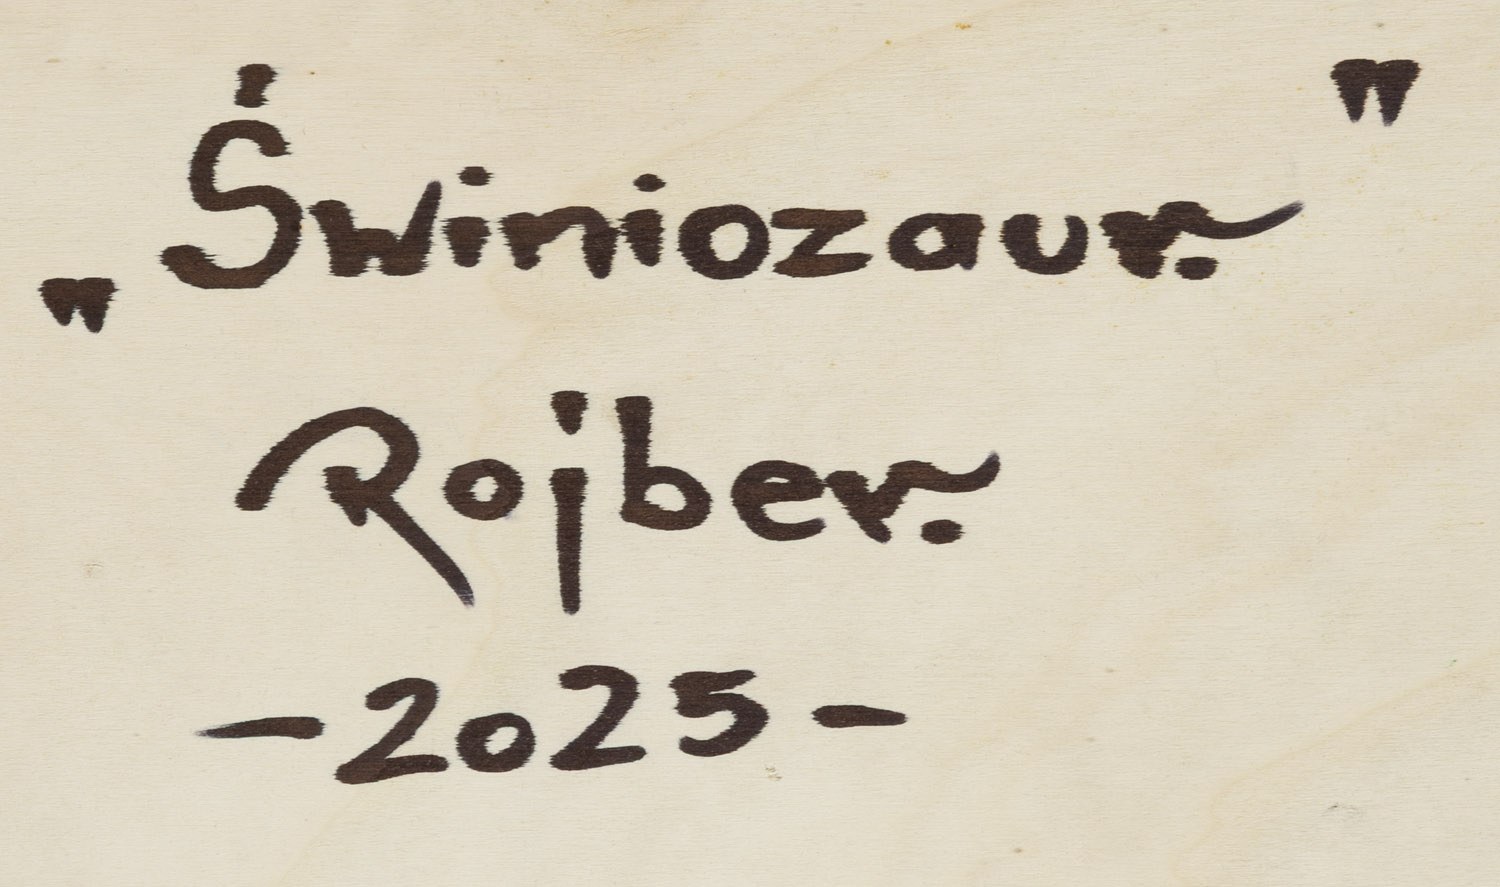 „Świniozaur."
Rojber.
-2025-